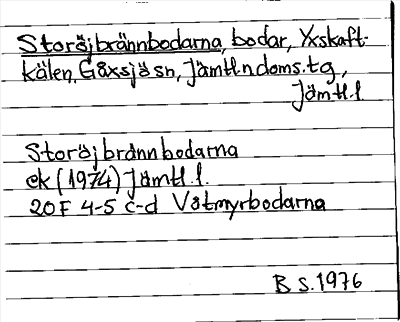 Storöjbrännbodarna, bodar, Yxskaft-
kälen, Gåxsjö sn, Jämtl.n doms.tg,
Jämtl.l.
Storöjbrännbodarna
ek (1974) Jämtl.l.
20F 4-5 c-d Våtmyrbodarna
B S. 1976